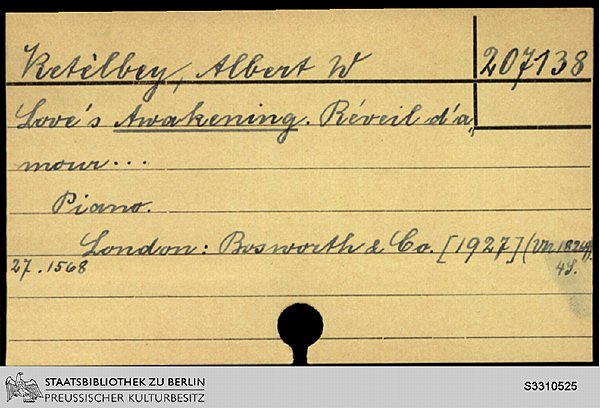 Ketèlbey, Albert W
207138
Love's Awakening. Réveil d'a„
mour...
Piano.
London: Bosworth & Co. [1927]
27.1568
4S.
STAATSBIBLIOTHEK ZU BERLIN
PREUSSISCHER KULTURBESITZ
S3310525